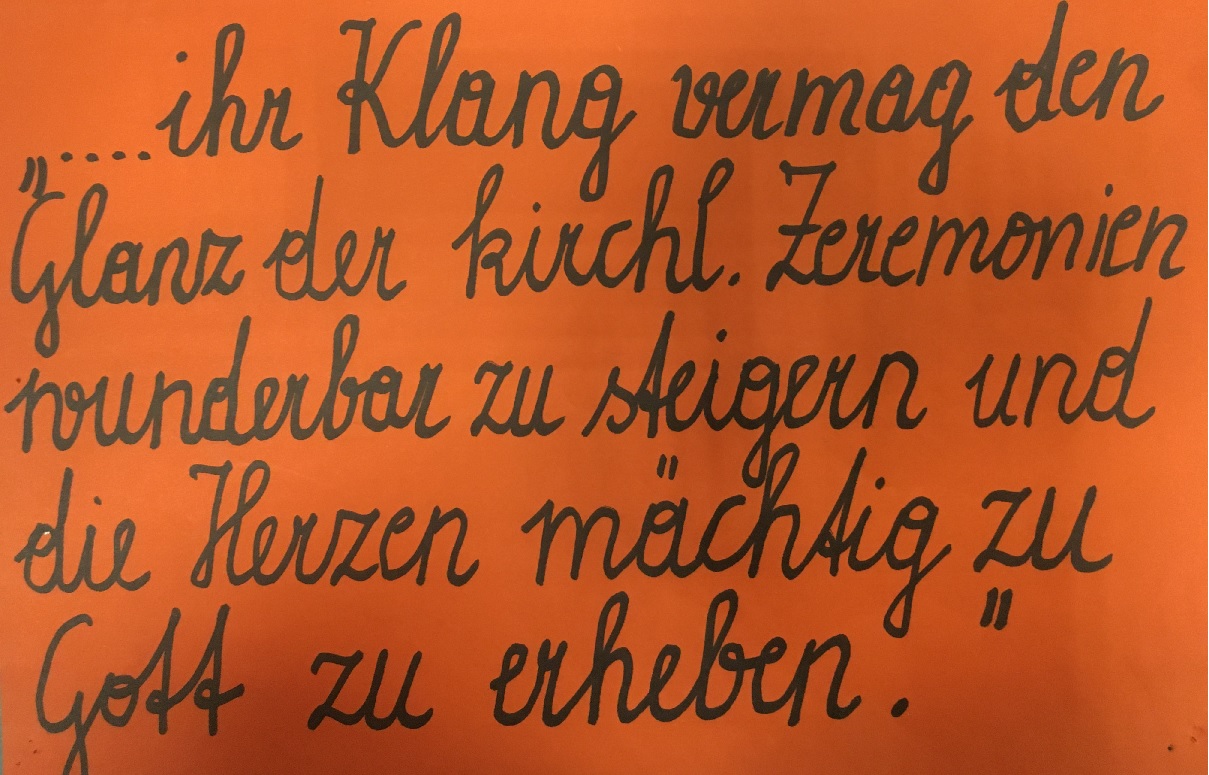 „.....ihr Klang vermag den
Glanz der kirchl. Zeremonien
wunderbar zu steigern und
die Herzen mächtig zu
Gott zu erheben."